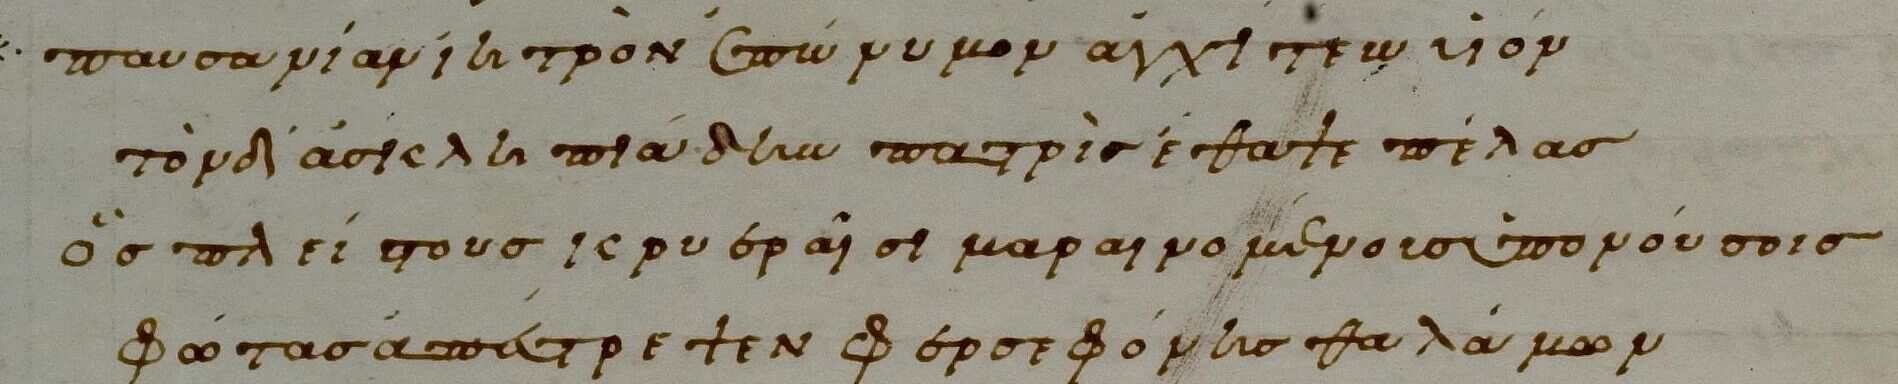 παυσανίαν ἰητρὸν ἐπώνυμον ἀγχίτεω υἱόν
τὸνδ' ἀσκληπιάδην πατρὶς ἔθαψε πέλας
ὃς πλείστους κρυεραῖσι μαραινομένοις ὑπο νούσοις
φῶτας ἀπέτρεψεν φερσεφόνης θαλάμων